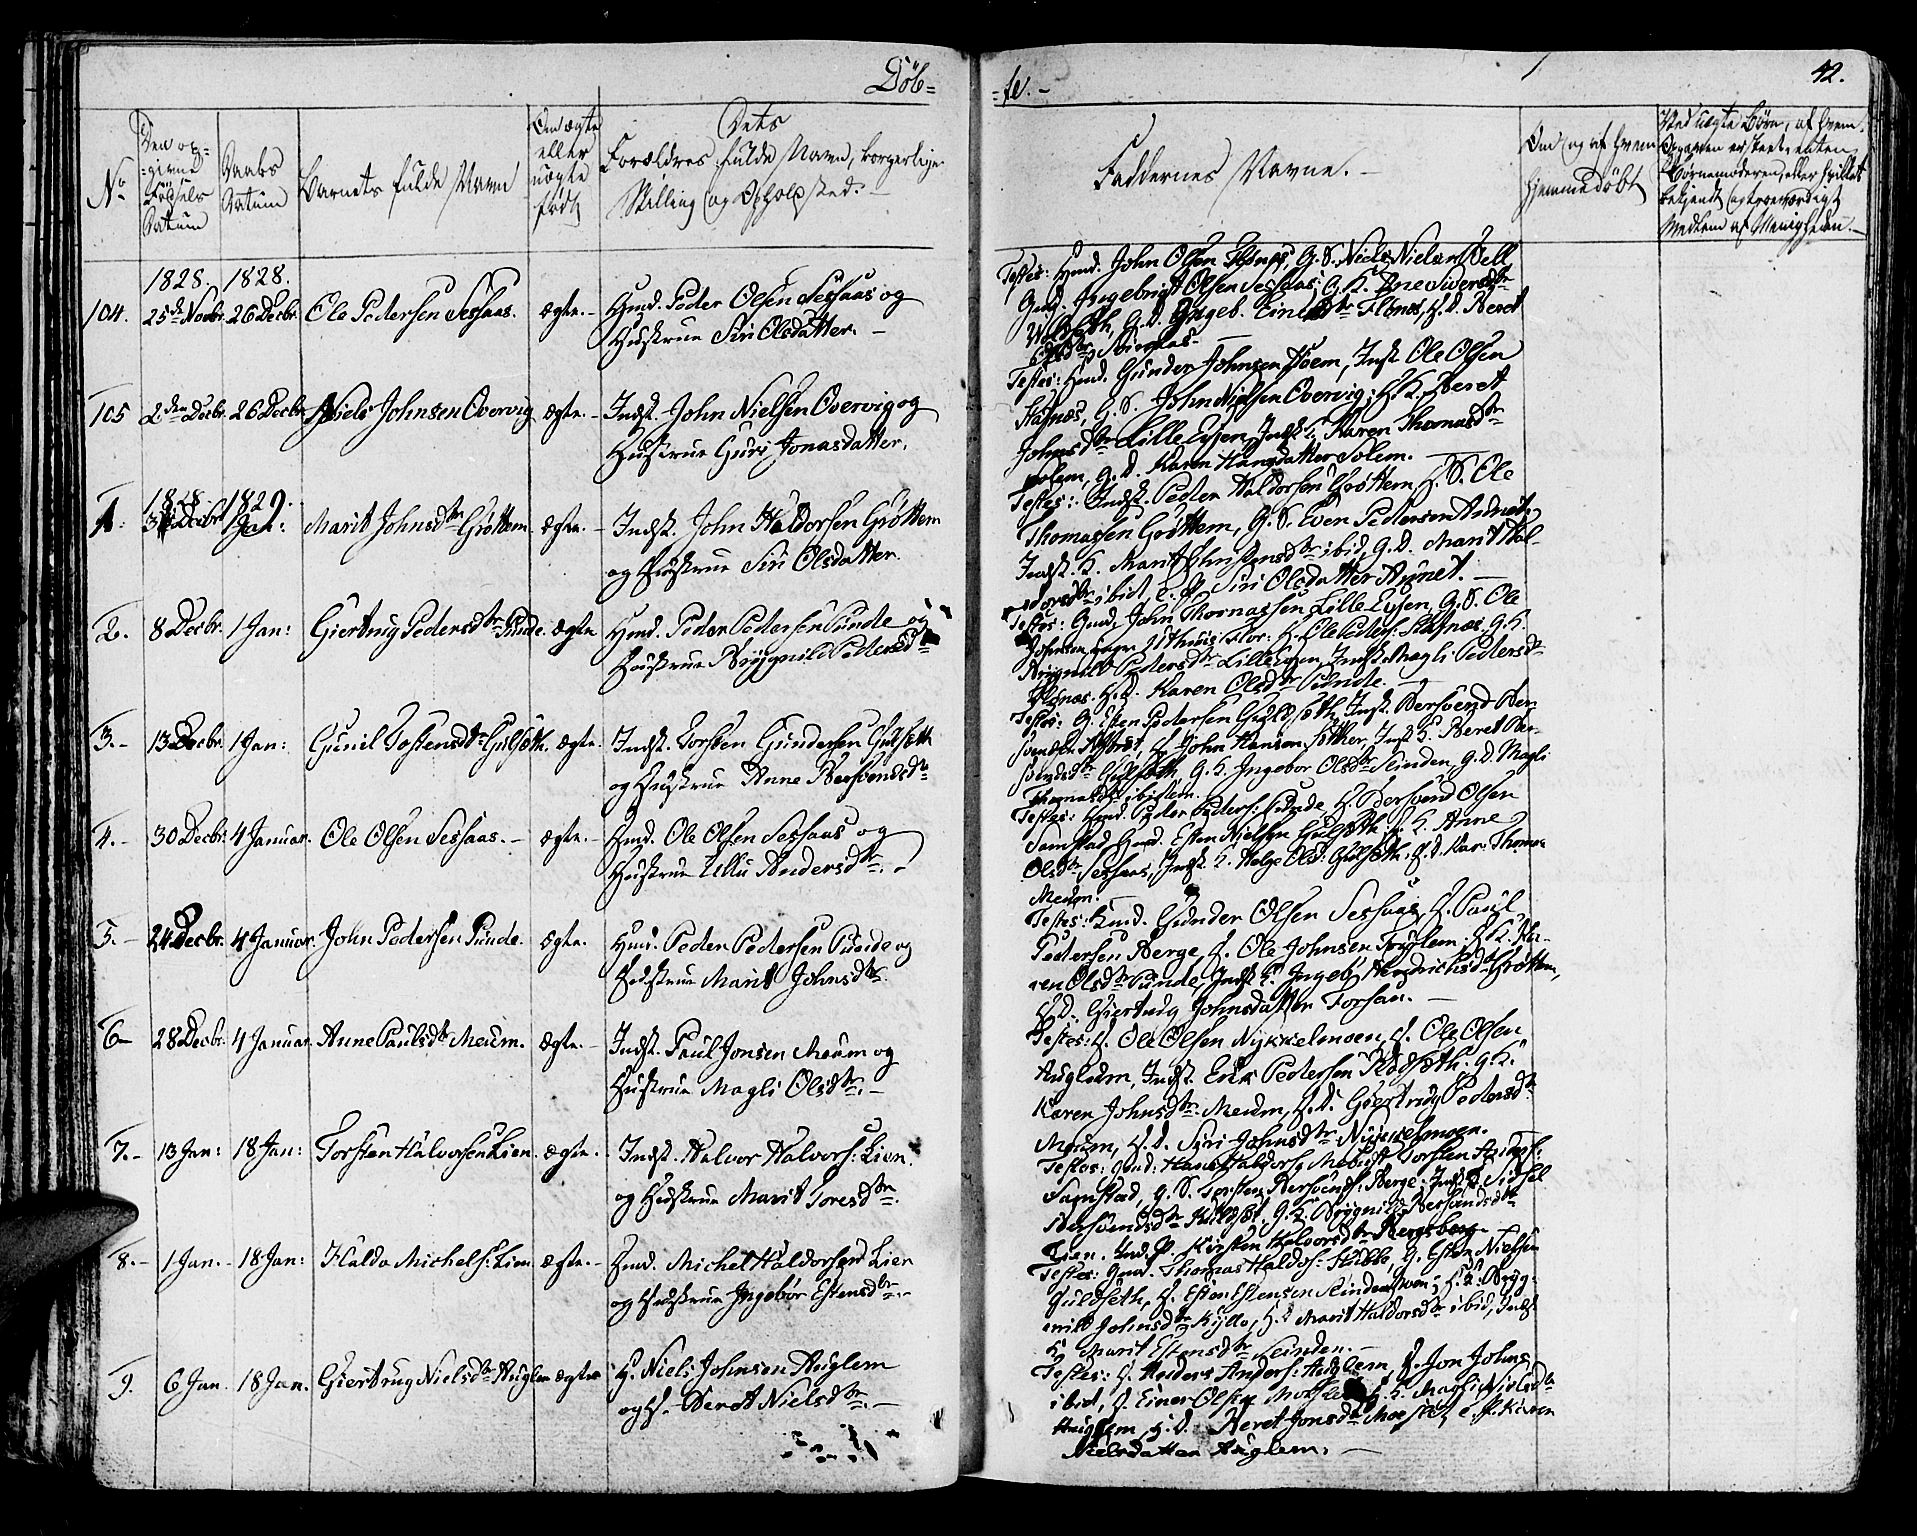 Døb=
=te. -
42.
No
Den op=
=givne
Fødsels
Datum
Daabs
Datum
Barnets fulde Navn
Om ægte
eller
uægte
født
Dets
Forældres fulde Navn, borgerlige
Stilling og Opholdsted. -
Faddernes Navne. -
Om og af hvem
hjemmedøbt
Ved uægte Børn, af hvem
Opgaven er skeet, enten
Børnemoderen, eller hvilket
bekjendt og troeværdigt
Medlem af Menigheden. -
1828. 1828.
104. 25de Novbr. 26 Decbr. Ole Pedersen Sessaas. ægte. - Gmd. Peder Olsen Sessaas og
Hustrue Siri Olsdatter. -
Testes: Gmd. John Olsen Flønes, G.S. Niels Nielsen Sell
Gmd. Ingebrigt Olsen Sessaas, G.K. Ane Sivertsdtr
G.D. Ingeb. Einersdtr Flønes, G.D. Beret
105 2den Decbr. 26 Decbr. Niels Johnsen Overvig ægte. - Indst. John Nielsen Overvig og
Hustrue Guri Jonasdatter.
Testes: Gmd. Gunder Johnsen Moem, Indst. Ole Olsen
Stafnæs, G.S. John Nielsen Overvig, G.K. Beret
Johnsdtr Lille Evjen, Indst. K. Karen Thomasdtr
Solem, G.D. Karen Hansdatter Solem. -
1828. 1829.
1. 31 Decbr. 1 Jan: Marit Johnsdtr Grøttem. ægte. - Indst. John Haldorsen Grøttem
og Hustrue Siri Olsdatter.
Testes: Indst. Peder Haldorsen Grøttem, G.S. Ole
Thomassen Grøttem, G.S. Even Pedersen Aunet,
Indst. K. Marit Christensdtr ibid, G.D. Marit Hal-
dorsdtr ibid, e. P. Siri Olsdatter Aunet. -
2. 8 Decbr. 1 Jan: Giertrug Pedersdtr Punde. ægte. Gmd. Peder Pedersen Punde og
Hustrue Brygnild Pedersdtr
Testes: Gmd. John Thomassen Lille Evjen, G.S. Ole
Johnsen H. Ole Peders: Stafnæs, G.K.
Brygnild Pedersdtr Lille Evjen, Indst. K. Magli Pedersdtr
Flønæs, G.D. Karen Olsdtr Punde. -
3. - 13 Decbr. 1 Jan: Gunil Tostensdtr Gulseth. ægte. Indst. Torsten Gundersen Gulseth
og Hustrue Anne Bersvendsdtr
Testes: G. Esten Pedersen Guldseth, Indst. Bersvend Ber-
svendsen John Hansen Sæther, Indst. K. Beret Ber-
svendsdtr Gulseth, G.K. Ingebor Olsdtr Kinden, G.D. Magli
Thomasdtr ibidem.
4. - 30 Decbr. 4 Januar. Ole Olsen Sessaas. - ægte. - Gmd. Ole Olsen Sessaas og
Hustrue Andersdtr. -
Testes: Gmd. Peder Peders: Punde, G. Bersvend Olsen
Samstad, Gmd. Esten Nielsen Gulseth, G.K. Anne
Olsdtr Sessaas, Indst. K. Helge Olsd: Gulseth, G.D. Kar: Thomæ
Meum.
5. - 24 Decbr. 4 Januar. John Pedersen Punde. ægte. Gmd. Peder Pedersen Punde og
Hustrue Marit Johnsdtr.
Testes: Gmd. Gunder Olsen Sessaas, G. Paul
Pedersen Berge, G. Ole Johnsen Fuglem, G.K. Ka-
ren Olsdtr Punde, Indst. K. Ingeb. Hendrichsdtr Grøttem,
G.D. Giertrug Johnsdatter Forsan. -
6 - 28 Decbr. 4 Januar. Anne Paulsdtr Meum. ægte. - Indst. Paul Jonsen Meum og
Hustrue Magli Olsdtr. -
Testes: G. Ole Olsen Nykkelmoen, G. Ole Olsen
Auglem, Indst. Erik Pedersen Kløseth, G.K.
Karen Johnsdtr Meum, G.D. Giertrug Pedersdtr
Meum, G.D. Siri Johnsdtr Nykkelmoen.
7. - 13 Jan: 18 Jan: Torsten Halvorsen Lien. ægte. - Indst. Halvor Halvors: Lien.
og Hustrue Marit Toresdtr.
Testes: Gmd: Hans Haldors: Torsten
Samstad, G.S. Torsten Bersvends: Berge, Indst. K. Sissel
Bersvendsdtr G.K. Brygnild Bersvendsdtr
Lien. Ind. P. Kirsten Halvorsdtr Bergeberg
8. - 1 Jan. - 18 Jan: Haldo Michels: Lien ægte. - Gmd. Michel Haldorsen Lien
og Hustrue Ingebor Estensdtr. -
Testes: Gmd. Thomas Haldors: Stubbe, G. Esten Nielsen
Guldseth, G. Esten Estensen G.K. Bryg-
nild Johnsdtr Kyllo, G.K. Marit Haldorsdtr ibid, Indst
K. Marit Estensdtr Selinden. -
9. 6 Jan. 18 Jan. Giertrug Nielsdtr Auglem ægte G. Niels Johnsen Auglem
og H. Beret Nielsdtr. -
Testes: G. Anders Anders: Auglem, G. Jon Johns
ibid, G. Einer Olsen G.K. Magli Nielsdtr
Auglem, G.D. Beret Jonsdtr e. P. Karen
Nielsdatter Auglem. -